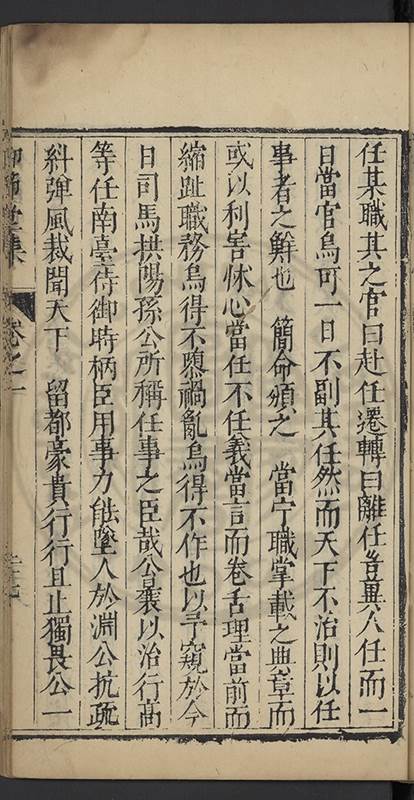 任某職其之官曰赴任遷轉曰離任豈異人任而一
日當官烏可一日不副其任然而天下不治則以任
事者之鮮也　簡命頒之　當宁職掌載之典章而
或以利害怵心當任不任義當言而卷舌理當前而
縮趾職務烏得不隳禍亂烏得不作也以予窺於今
日司馬拱陽孫公所稱任事之臣哉公曩以治行高
等任南臺侍御時柄臣用事力能墜人於淵公抗疏
糾彈風裁聞天下　留都豪貴行行且止獨畏公一
節堂集　卷之一